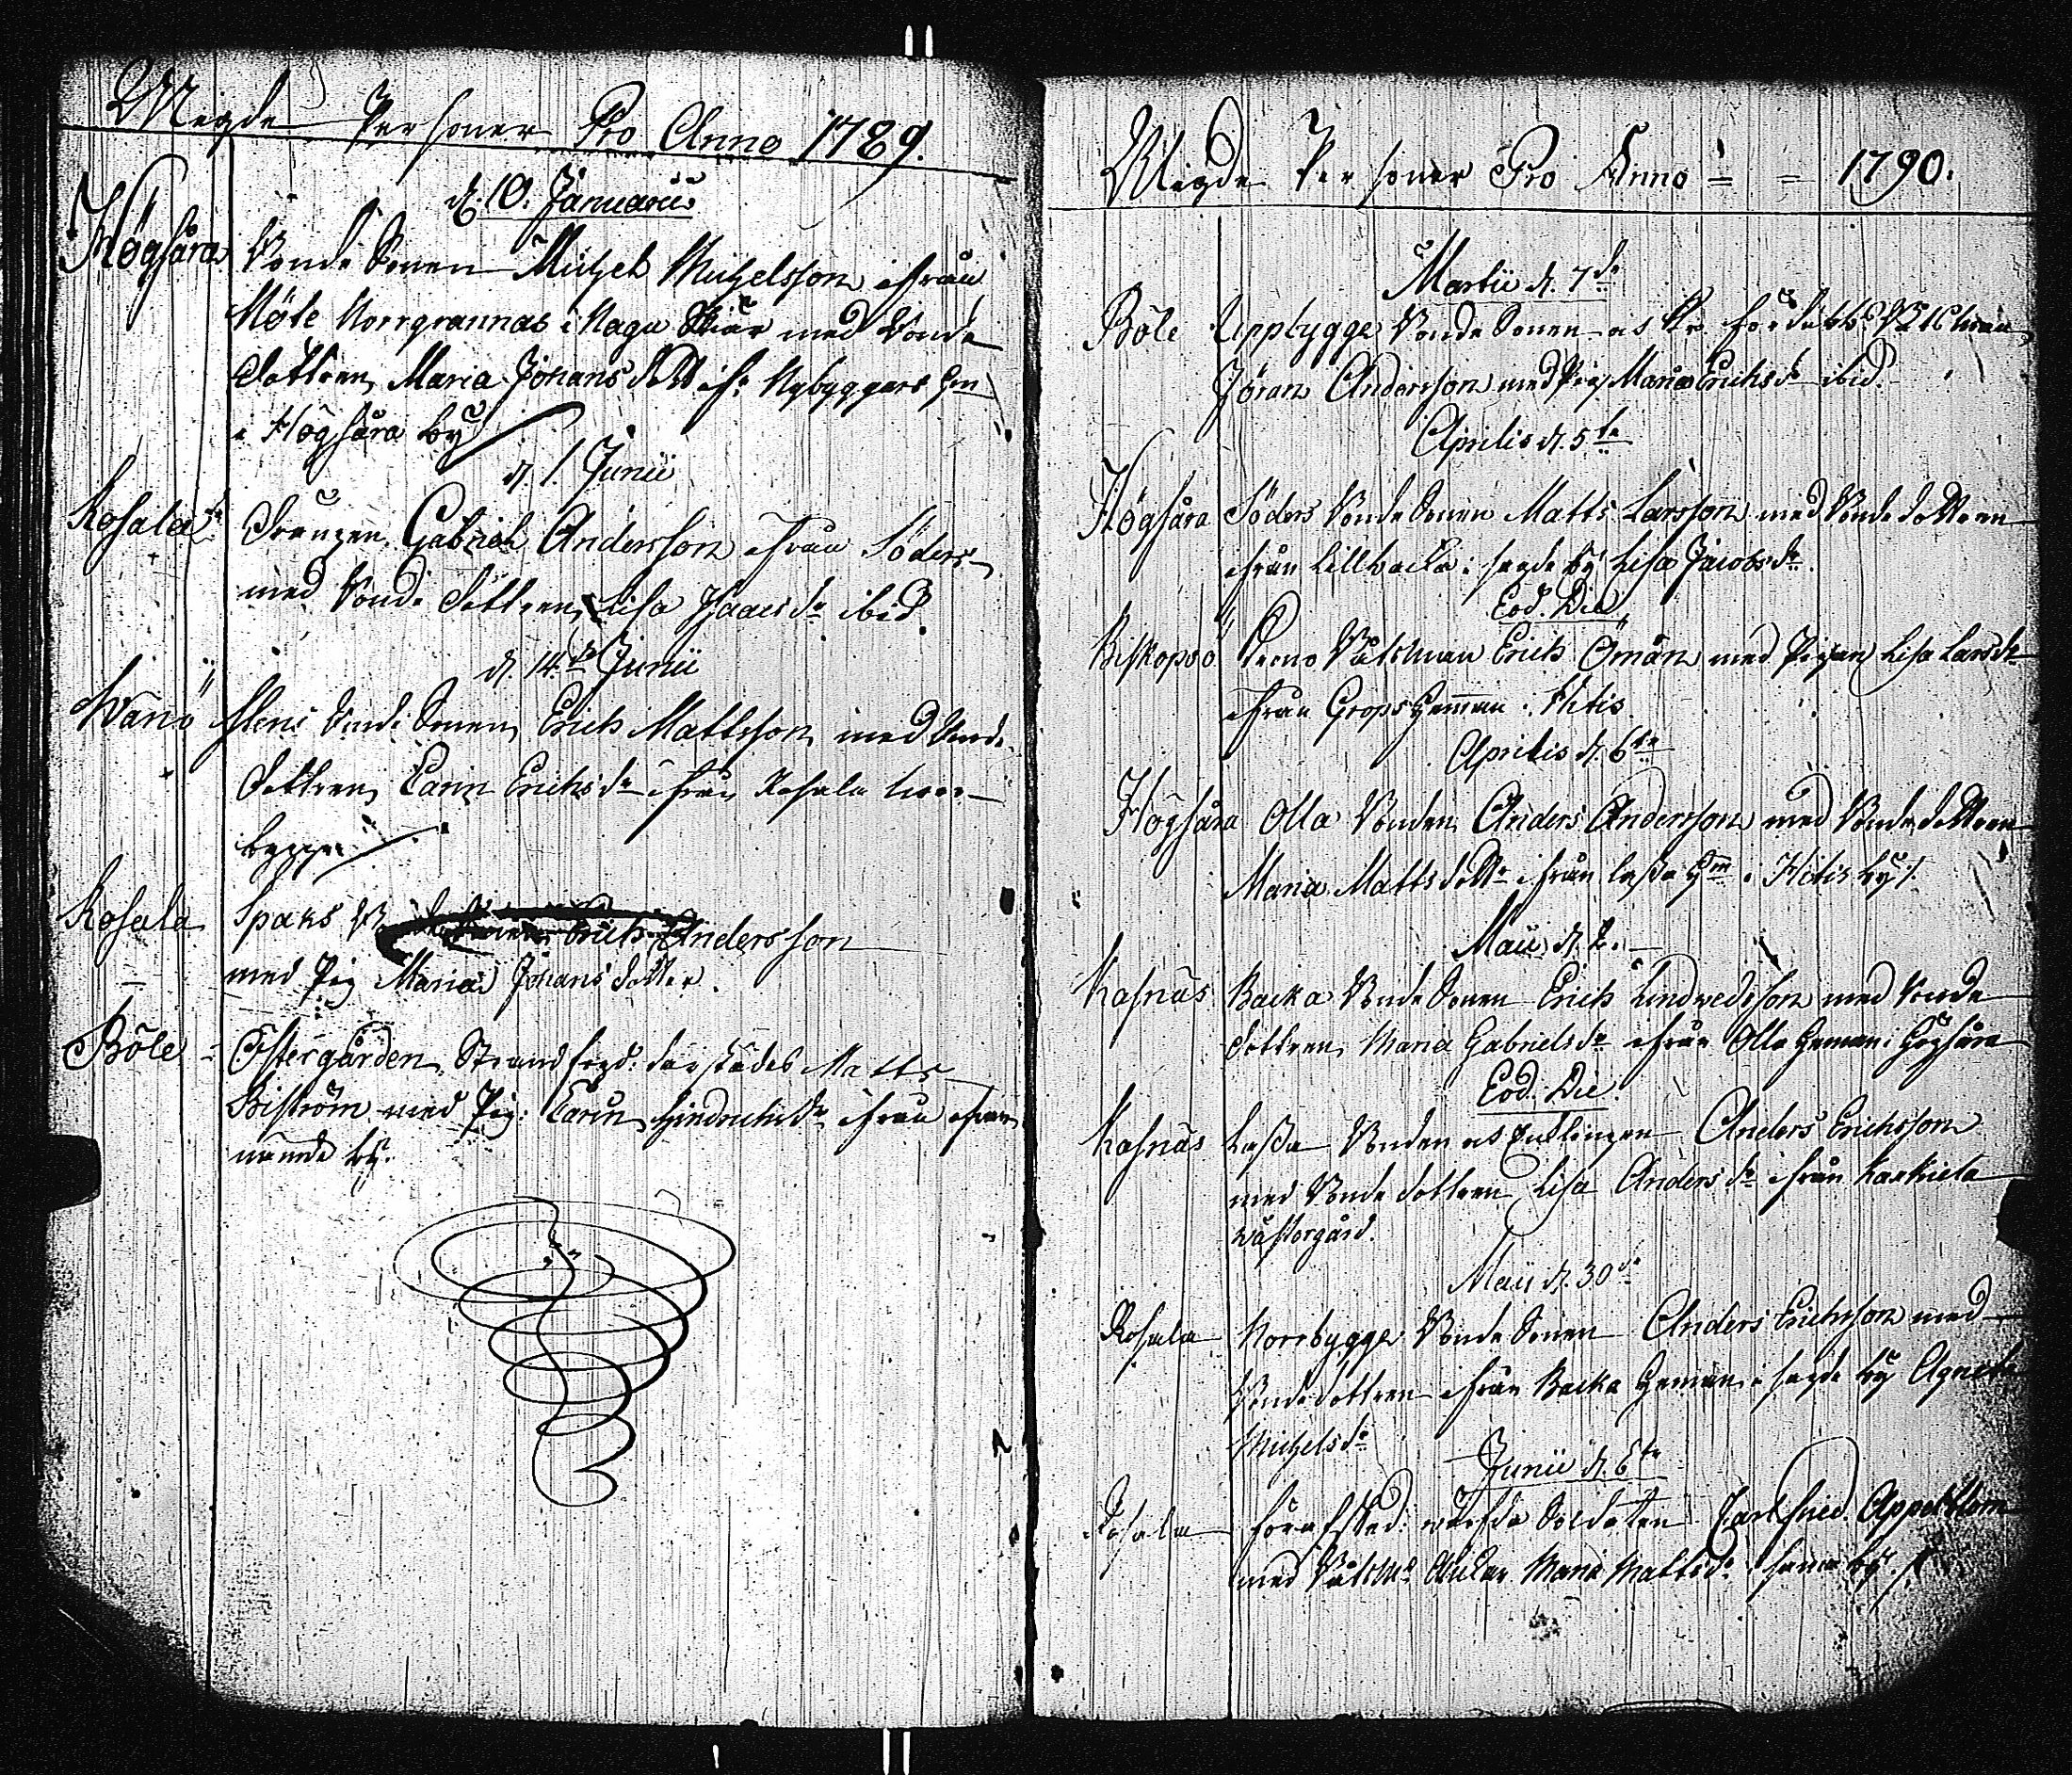 Wigde Personer Pro Anno 1789.
d. 10. Januarii
Högsåra Bonde Sonen Michel Michelsson ifrån
Möte Norrgrannas i Nagu Skiär med Bonde
dottren Maria Johans dott. ifr. Nybyggars
i Högsåra by
d. 1. Junii
Rosala Drengen Gabriel Andersson ifrån Söders
med Bonde dottren Lisa Isaacs dr ibid.
d. 14. de Junii
Wänö Bonde Sonen Erich Mattsson med Bonde
dottren Carin Erichs dr ifrån Rosala Norr-
bygge
Rosala Spaks Erich Andersson
med Pig. Maria Johans dotter.
Böle Östergården Strandfogd. därstädes Matts
Biström med Pig: Carin Hindrichs dr ifrån
nämde by.
Wigde Personer Pro Anno 1790.
Martii d. 7 de
Böle Uppbygge Bonde Sonen
Jöran Andersson med Pig. Maria Erichs dr ibid.
Aprilis d. 5 te
Högsåra Söders Bonde Sonen Matts Larsson med Bonde dottren
ifrån Lillbacka i sagde by Lisa Jacobs dr.
Eod. Die
Biskopsö Båtsman Erich Öman med Pigan Lisa Lars dr
ifrån Grops Hemman i Hitis
Aprilis d. 6 te
Högsåra Olla Bonden Anders Andersson med Bonde dottren
Maria Matts dottr ifrån Lassa i Hitis by
Maii d. 2.
Kasnäs Backa Bonde Sonen Erich Lindvedsson med Bonde
dottren Maria Gabriels dr ifrån Olla Heman i Högsåra
Eod. Die.
Kasnäs Lassa Bonden Anders Erichsson
med Bonde dottren Lisa Anders dr ifrån
wästergård.
Maii d. 30 de
Rosala Norrbygge Bonde Sonen Anders Erichsson med
Bonde dottren ifrån Backa Heman i sagde by Agneta
Michels dr
Junii d. 6 te
Rosala wärfda Soldaten Carl Fried. Appelblom
med Båtsm. Änkan Maria Matts dr i samma by